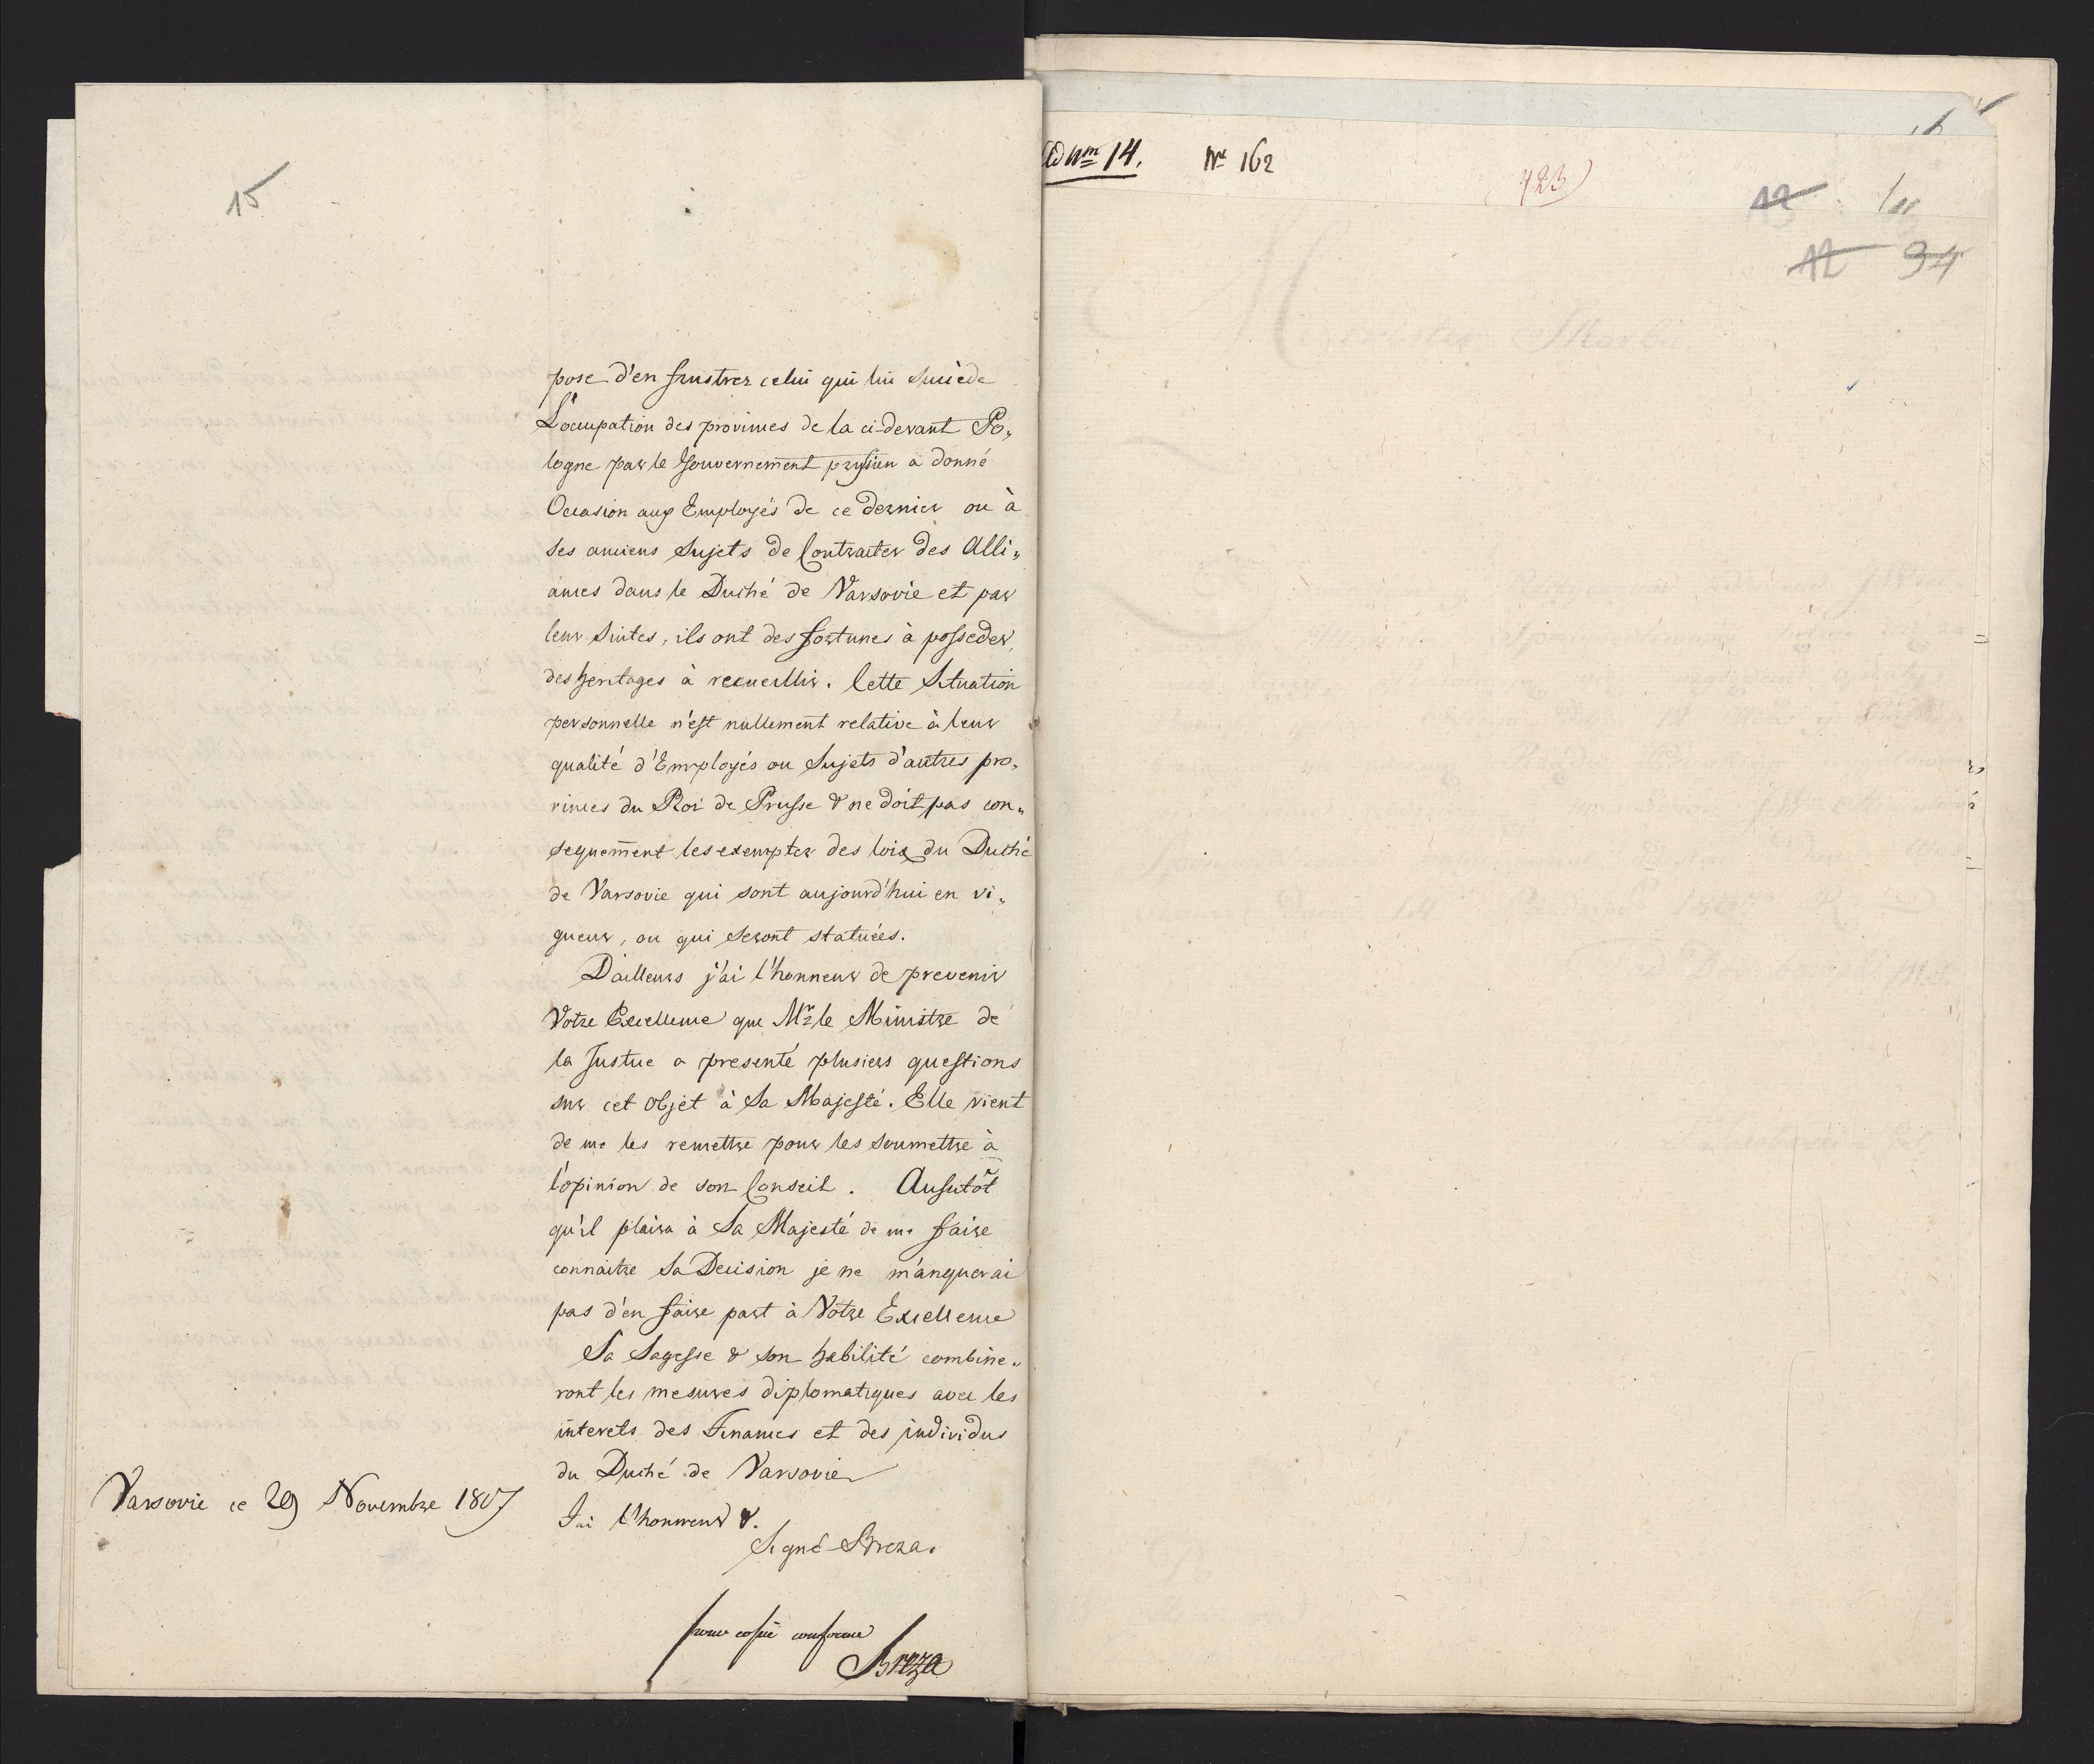 15
pose d'en frustrer celui qui lui succède
L'occupation des provinces de la ci-devant Po„
logne par le Gouvernement prussien a donné
Occasion aux Employés de ce dernier ou à
ses anciens Sujets de Contracter des Alli„
ances dans le Duché de Varsovie et par
leur Suites, ils ont des fortunes à posseder,
des heritages à recueillir. Cette Situation
personnelle n'est nullement relative à leur
qualité d'Employés ou Sujets d'autres pro„
vinces du Roi de Prusse & ne doit pas con„
sequem̄ent les exempter des loix du Duché
de Varsovie qui sont aujourd'hui en vi„
gueur, ou qui seront statuées.
D'ailleurs j'ai l'honneur de prevenir
Votre Excellence que Mr le Ministre de
la Justice a presenté plusiers questions
sur cet objet à Sa Majesté. Elle vient
de me les remettre pour les soumettre à
l'opinion de son Conseil. Aussitôt
qu'il plaira à Sa Majesté de me faire
connaitre Sa Decision je ne manquerai
pas d'en faire part à Votre Excellence
Sa Sagesse & son habilité combine„
ront les mesures diplomatiques avec les
interets des Finances et des individus
du Duché de Varsovie
Varsovie ce 29 Novembre 1807
J'ai l'honneur &.
Signé Breza.
pour copie conforme
Breza
ad Num 14. Nr 162
(423)
12
12 94